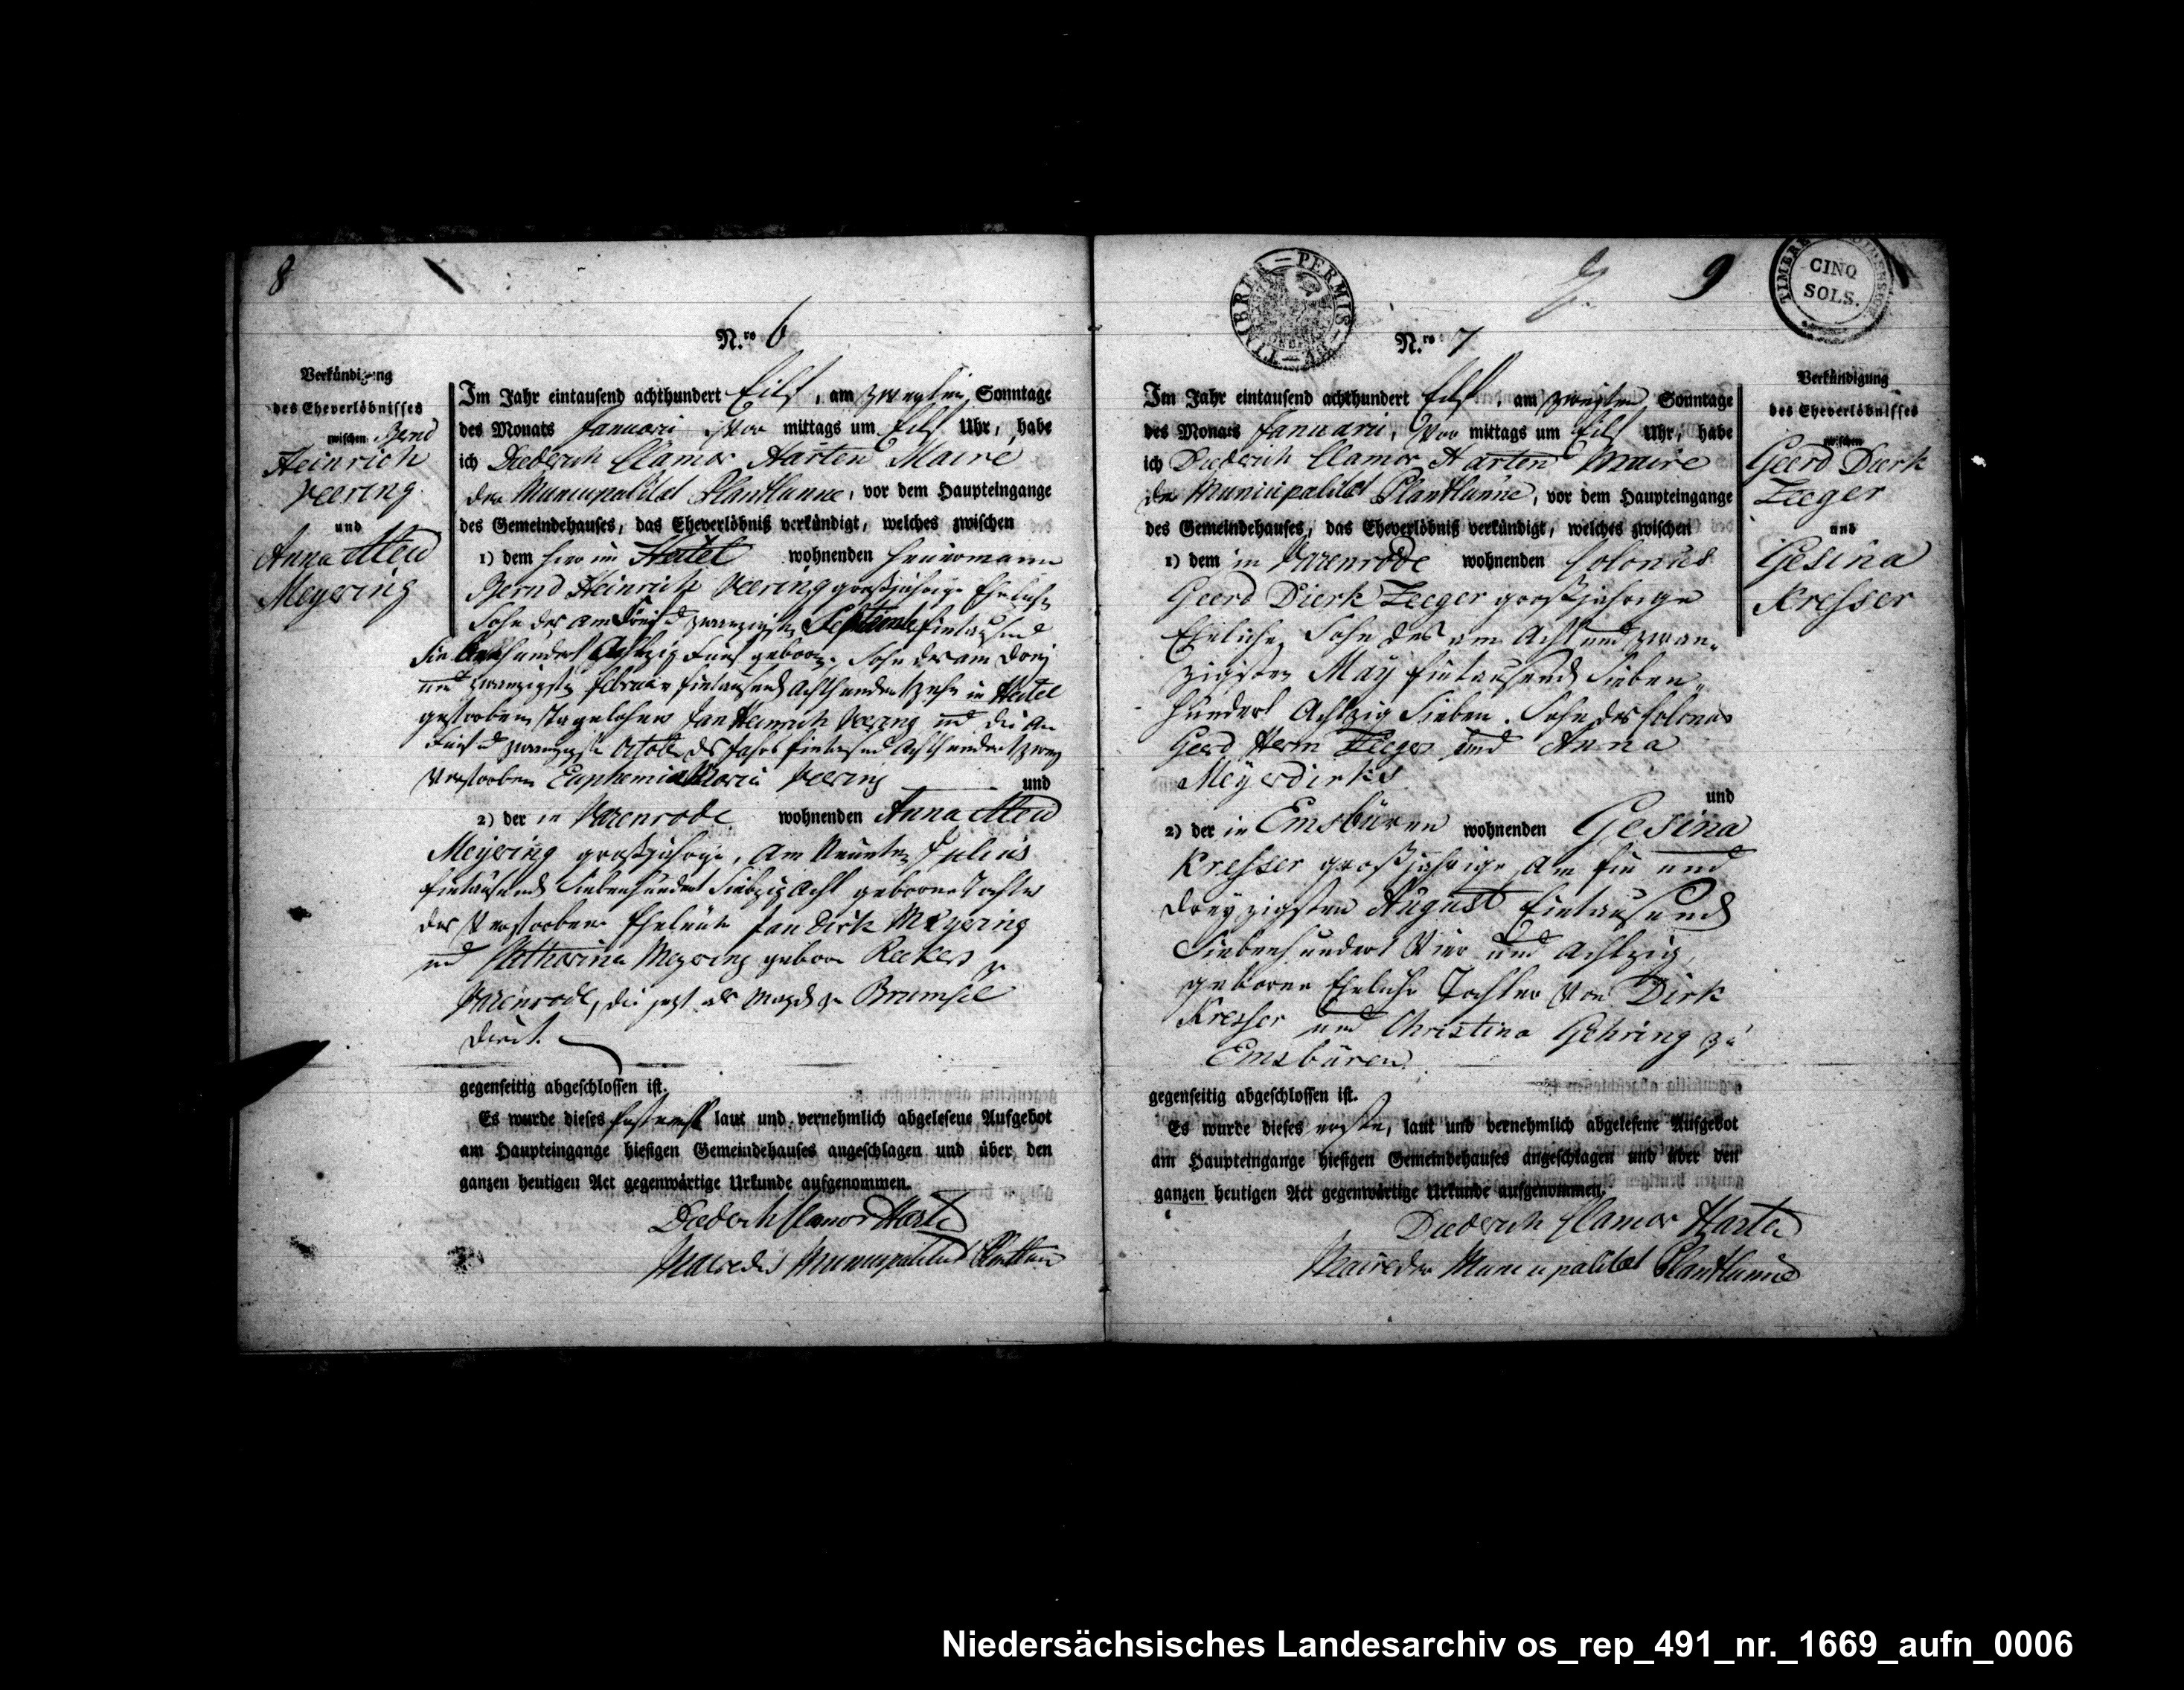 8
N.ro 6
Verkündigung
des Eheverlöbnisses
zwischen Bernd
Heinrich
Veering
und
Anna Aleid
Meyering
Im Jahr eintausend achthundert Eilf, am zweyten Sonntage
des Monats Januari, Vor mittags um Eilf Uhr, habe
ich Diederich Clamor Harten Maire
der Municipalität Plantlünne, vor dem Haupteingange
des Gemeindehauses, das Eheverlöbniß verkündigt, welches zwischen
1) dem hier in Heitel wohnenden Heuermann
Bernd Heinrich Veering großjährige Eheliche
Sohn des am zwanzigsten September Eintausend
Siebenhundert Achtzig Fünf geboren. Sohn des am Drey
und zwanzigsten Februar Eintausend Achthundert zehn in Heitel
gestorbenen Tagelöhner Jan Heinrich Veering und die am
zwanzigste October des Jahrs Eintausend Achthundert zwey
Verstorben Euphemia Maria Veering
und
2) der in Varenrode wohnenden Anna Aleid
Meyering großjährige, Am Neunten Julius
Eintausend Siebenhundert Siebzig Acht geborne Tochter
der Verstorbene Eheleute Jan Dirk Meyering
und Catharina Meyering geborn Reekers zu
Varenrode, die jetzt als Magd zu Bramsel
dient.
gegenseitig abgeschlossen ist.
Es wurde dieses laut und vernehmlich abgelesene Aufgebot
am Haupteingange hiesigen Gemeindehauses angeschlagen und über den
ganzen heutigen Act gegenwärtige Urkunde aufgenommen.
Diederich Clamor Harten
Maire der Municipalität Plantlünne
TIMBRE PERMIS
9
TIMBRE
CINQ
SOLS.
N.ro 7
Verkündigung
des Eheverlöbnisses
zwischen
Geerd Dierk
Zeeger
und
Gesina
Kresser
Im Jahr eintausend achthundert Eilf, am zweyten Sonntage
des Monats Januarii, Vor mittags um Eilf Uhr, habe
ich Diederich Clamor Harten Maire
der Municipalität Plantlünne, vor dem Haupteingange
des Gemeindehauses, das Eheverlöbniß verkündigt, welches zwischen
1) dem in Varenrode wohnenden Colonus
Geerd Dierk Zeeger großjährige
Eheliche Sohn des am Acht und zwan-
zigsten May Eintausend Sieben-
hundert Achtzig Sieben. Sohn des Colonus
Geerd Herm Zeeger und Anna
Meyerdirks
und
2) der in Emsbüren wohnenden Gesina
Kresser großjährige, Am Ein und
Dreyzigsten August Eintausend
Siebenhundert Vier und Achtzig,
geborne Eheliche Tochter von Dirk
Kresser und Christina Gehring zu
Emsbüren.
gegenseitig abgeschlossen ist.
Es wurde dieses erste, laut und vernehmlich abgelesene Aufgebot
am Haupteingange hiesigen Gemeindehauses angeschlagen und über den
ganzen heutigen Act gegenwärtige Urkunde aufgenommen.
Diederich Clamor Harten
Maire der Municipalität Plantlünne
Niedersächsisches Landesarchiv os_rep_491_nr._1669_aufn_0006